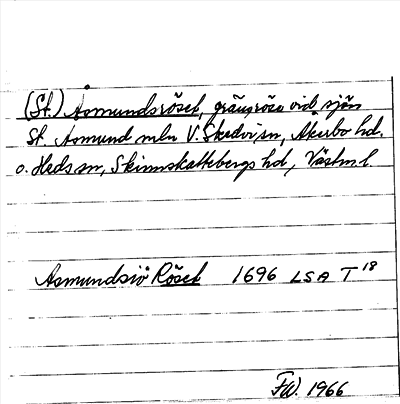 (St.) Åsmundsröset, gränsröse vid sjön
St. Åsmund mln V. Skedvi sn, Åkerbo hd.
o. Heds sn, Skinnskattebergs hd, Västm l.
Asmundsiö Röset 1696 LSA T 18
FW. 1966